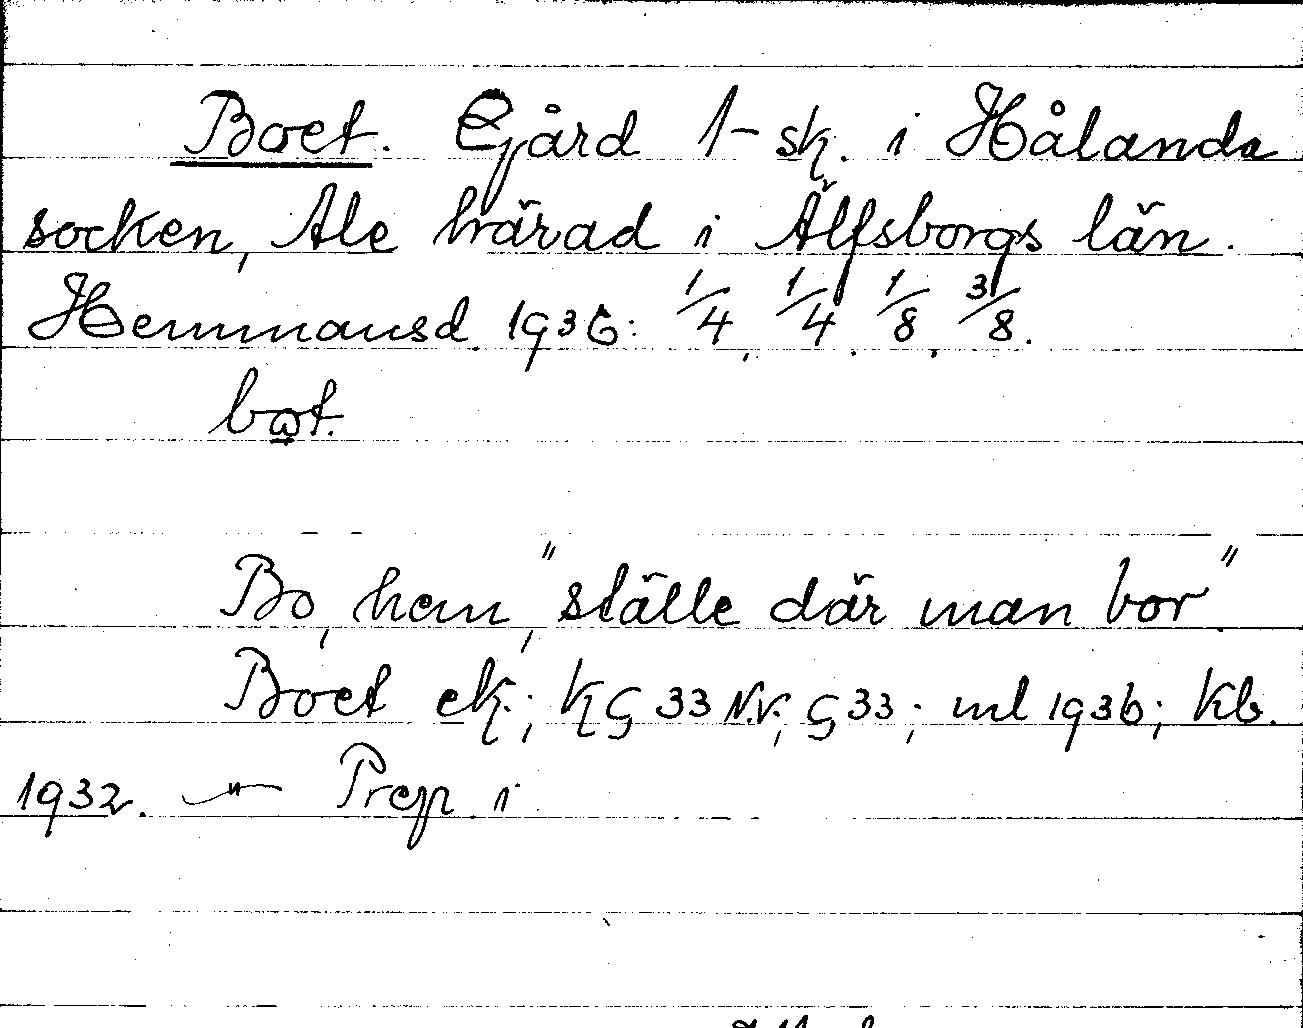 Boet. Gård 1-sk. i Hålanda
socken, Ale härad i Älfsborgs län.
Hemmansd. 1936: 1/4, 1/4, 1/8, 3/8.
bωt.
Bo, hem, "ställe där man bor".
Boet ek.; KG 33 N.V.; G 33; ml 1936; Kb.
1932. — " — Prep i